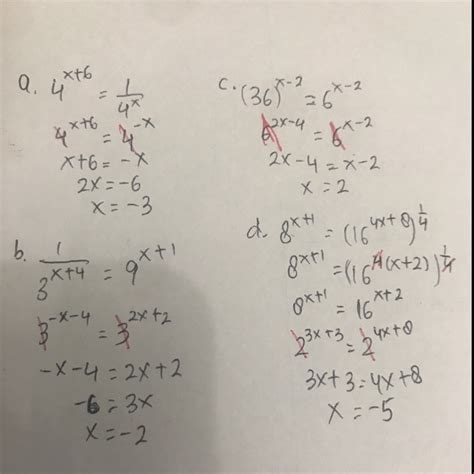 a. 4^{x+6} = 1/4^x
4^{x+6} = 4^{-x}
x+6 = -x
2x = -6
x = -3
b. 1/3^{x+4} = 9^{x+1}
3^{-x-4} = 3^{2x+2}
-x-4 = 2x+2
-6 = 3x
x = -2
c. (36)^{x-2} = 6^{x-2}
6^{2x-4} = 6^{x-2}
2x-4 = x-2
x = 2
d. 8^{x+1} = (16^{4x+8})^{1/4}
8^{x+1} = (16^{4(x+2)})^{1/4}
8^{x+1} = 16^{x+2}
2^{3x+3} = 2^{4x+8}
3x+3 = 4x+8
x = -5